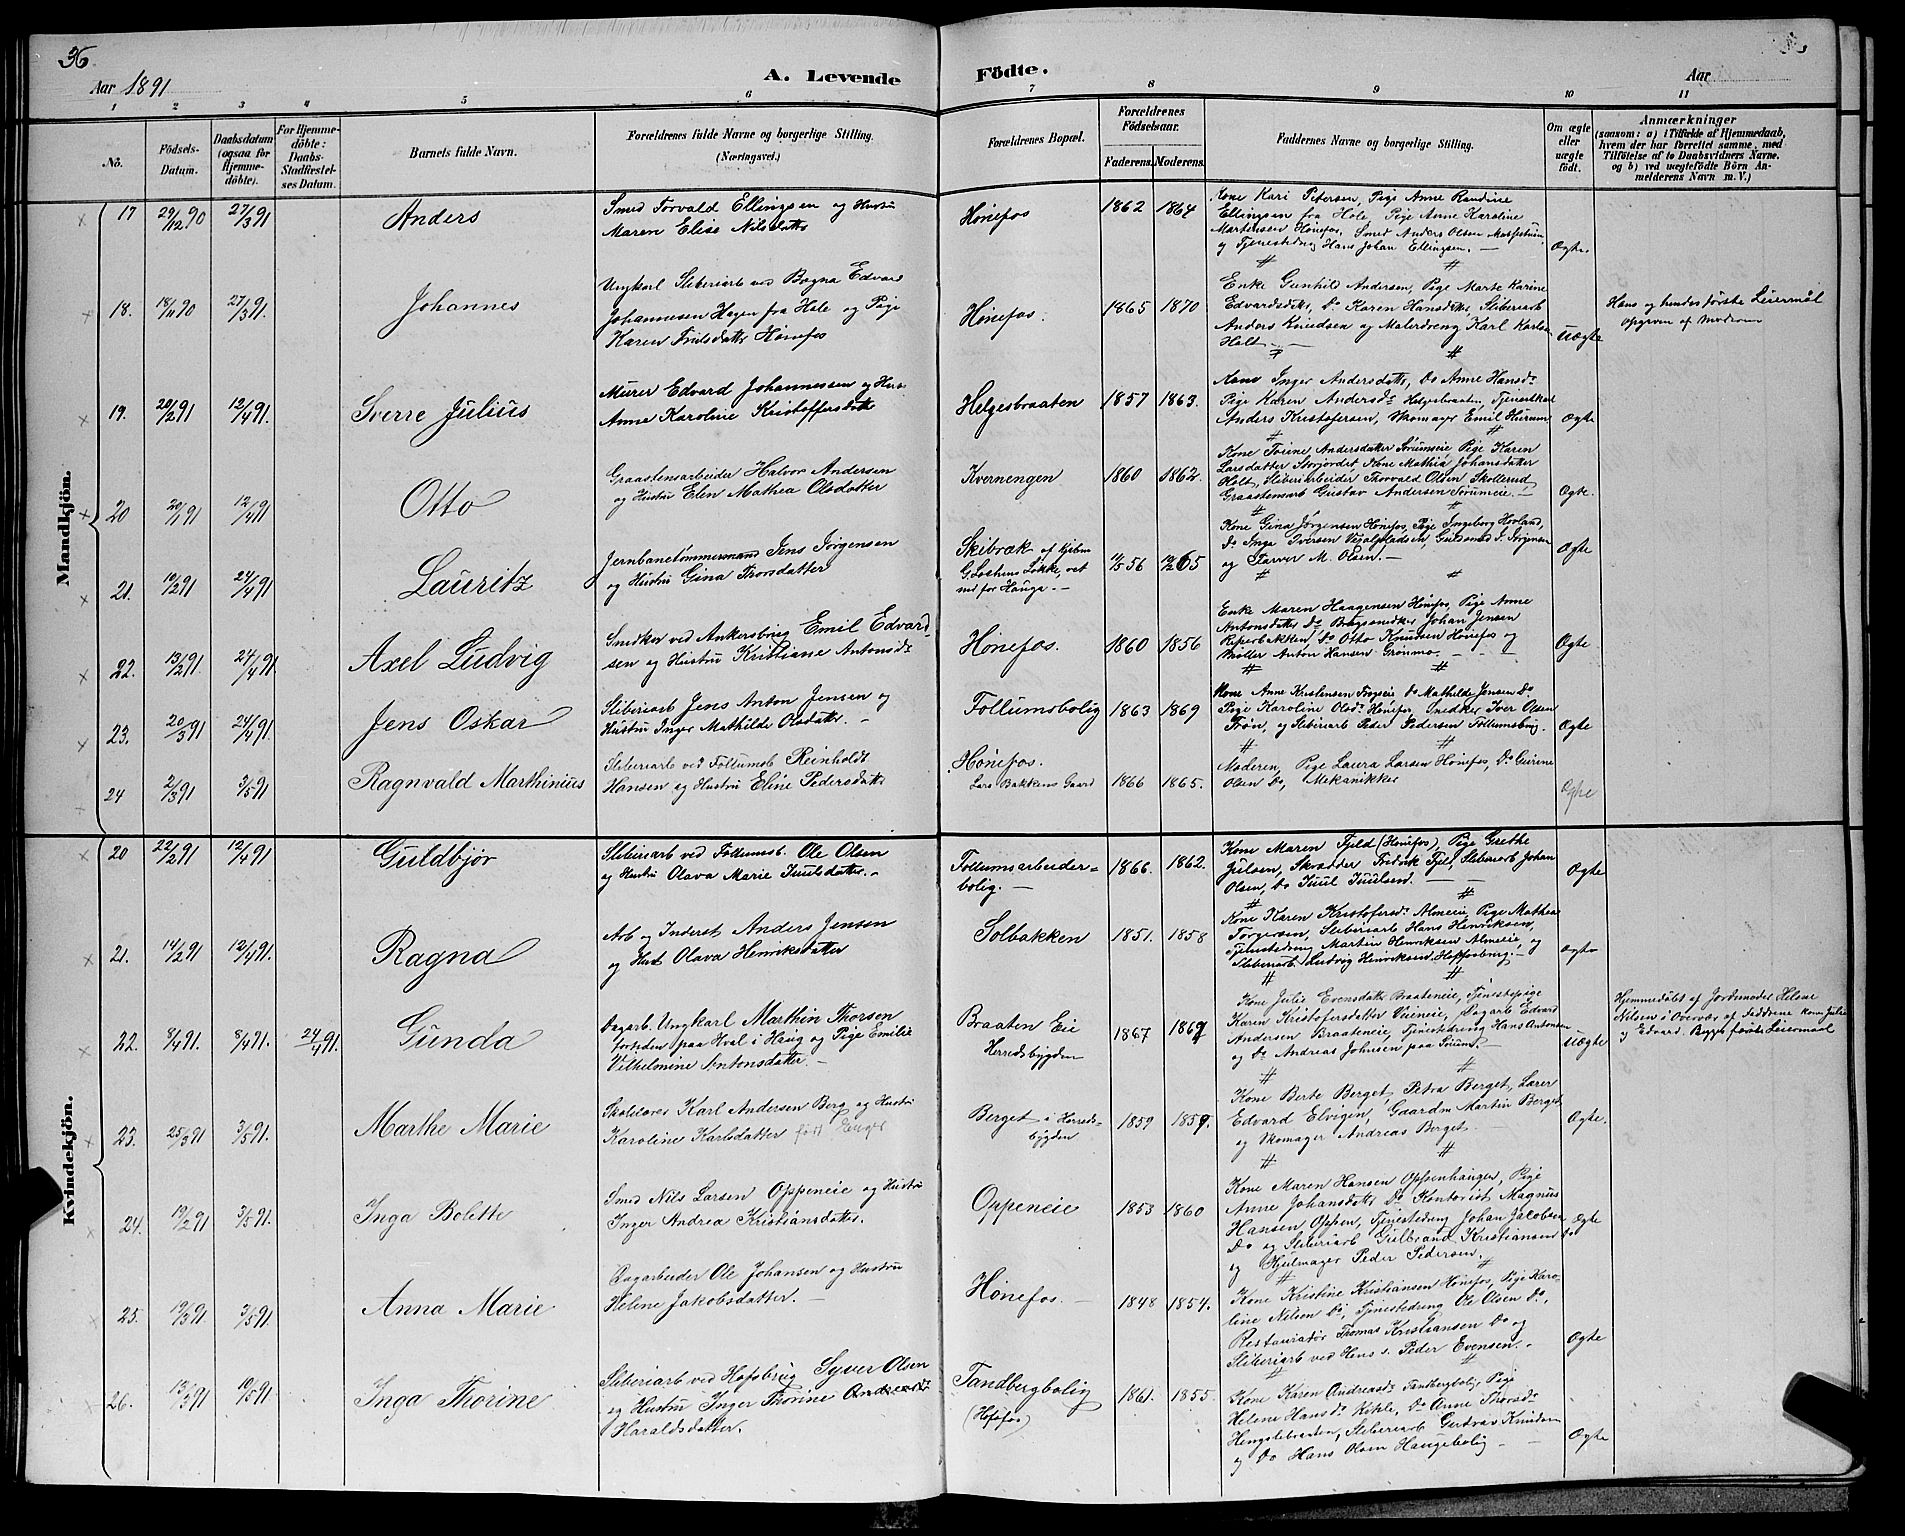 36
Aar 1891
A. Levende
Födte.
Aar
1 2 3 4 5 6 7 8 9 10 11
No.
Födsels-Datum.
Daabsdatum (ogsaa for Hjemme-döbte).
For Hjemme-döbte: Daabs-Stadfæstel-ses Datum.
Barnets fulde Navn.
Forældrenes fulde Navne og borgerlige Stilling.
(Næringsvei.)
Forældrenes Bopæl.
Forældrenes Födselsaar.
Faderens. Moderens.
Faddernes Navne og borgerlige Stilling.
Om ægte eller uægte födt.
Anmærkninger
(saasom: a) i Tilfælde af Hjemmedaab,
hvem der har forrettet samme, med
Tilföielse af to Daabsvidners Navne.
og b) ved uægtefödte Börn An-
melderens Navn m. V.)
Mandkjön.
17 29/12 90 27/3 91 Anders
Smed Torvald Ellingsen og Hustru
Maren Elise Nilsdatter
Hönefos 1862 1864
Kone Kari Petersen, Pige Anne Randine
Ellingsen fra Hole, Pige Anne Karoline
Martinsen Hönefos, Smed Anders Olsen
og Tjenestedreng Hans Johan Ellingsen. —
Ægte.
18. 18/11 90 27/3 91. Johannes
Ungkarl Sliberiarb ved Bagna Edvard
Johannesen Hagen fra Hole og Pige
Karen Hönefos
Hönefos. 1865 1870
Enke Gunhild Andersen, Pige Marte Karine
Edvardsdtr, Do Karen Hansdtr, Sliberiarb
Anders Knudsen og Malerdreng Karl Karlsen
Holt —
uægte
Hans og hendes förste Leiermål
opgiven af Moderen
19. 20/2 91 12/4 91. Sverre Julius
Murer Edvard Johannessen og Hus.
Anne Karoline Kristoffersdatter
Helgesbraaten 1857 1863.
Kone Inger Andersdatter, Do Anne Hansd.
Pige Karen Andersd. Helgesbraaten, Tjenestkarl
Anders Kristofersen, Skomager Emil Hurum
Ægte
20 20/1 91 12/4 91 Otto
Graastensarbeider Halvor Andersen
og Hustru Elen Mathea Olsdatter
Kvernengen 1860 1862.
Kone Trine Andersdatter Sörumeie Pige Karen
Larsdatter Storjordet, Kone Mathia Johansdatter
Holt, Sliberiarbeider Thorvald Olsen Skollerud
Graastensarb Gustav Andersen Sörumeie. —
Ægte.
21. 10/2 91 24/4 91 Lauritz
Jernbanetömmermand Jens Jörgensen
og Hustru Gina Trorsdatter
Skibræk af
G. Lökke, vest
ned for Hauga. —
12/5 56 12/2 65
Kone Gina Jörgensen Hönefos, Pige Ingeborg Hovland,
Do Inga Iversen, Guldsmed J. Jörgensen
og Farver M. Olsen. —
Ægte
22. 13/2 91. 24/4 91. Axel Ludvig
Snidker ved Ankersbrug Emil Edvard-
sen og Hustru Kristiane Antonsdtr
Hönefos. 1860 1856
Enke Maren Haagensen Hönefos, Pige Anne
Antonsdatter Do Johan Jensen
Reperbakken, Do Otto Knudsen Hönefos og
Möller Anton Hansen Grönmo.
Ægte
23. 20/3 91 24/4 91 Jens Oskar
Sliberiarb Jens Anton Jensen og
Hustru Inger Mathilde Olsdatter. —
Follumsbolig 1863 1869
Kone Anne Kristensen, Do Mathilde Jensen Do
Pige Karoline Olsd. Hönefos, Snedker Iver Olsen
Trön, og Sliberiarb Peder Pedersen Follumsbrug.
Ægte
24 2/3 91 3/5 91 Ragnvald Marthinius
Sliberiarb ved Follumsb Reinholdt
Hansen og Hustru Eline Pedersdatter
Hönefos.
Lars Bakkens Gaard
1866 1865.
Moderen, Pige Laura Larsen Hönefos, Do
Olsen Do, Mekanikker
Ægte
Kvindekjön.
20 22/2 91 12/4 91 Guldbjör
Sliberiarb ved Follumsb. Ole Olsen
og Hustru Olava Marie Juulsdatter. —
Follumsarbeider-
bolig. —
1866. 1862.
Kone Maren Fjeld (Hönefos), Pige Grethe
Julsen, Skrædder Fredrik Fjel, Sliberiarb Johan
Olsen, Do Juul Juulsen. —
Ægte
21. 14/2 91 12/4 91. Ragna
Arb og Inderst Anders Jensen
og Hust Olava Henriksdatter
Solbakken 1851. 1858
Kone Karen Kristofersd. Almeie, Pige Mathea
Torgersen, Sliberiarb Hans Henriksen,
Tjenestedreng Martin Henriksen Almeie, og
Sliberiarb. Ludvig Henriksen Hofsfosbrug. —
ægte
22. 8/4 91. 8/4 91. 24/4 91. Gunda
Dagarb. Ungkarl Marthin Thorsen
fortiden paa Hval i Haug og Pige Emilie
Vilhelmine Antonsdatter. —
Braaten Eie
Herredsbygden
1867 1869
Kone Julie Evensdatter Braateneie, Tjenestepige
Karen Kristofersdatter Veieneie, Dagarb Edvard
Andersen Braateneie, Tjenestedreng Hans Antonsen
og Do Andreas Johnsen paa Sörum. —
uægte
Hjemmedöbt af Jordmoder Helene
Nilsen i Overvær af Faddrene kone Julie
og Edvard. Begges förste Leiermaal
23. 25/3 91 3/5 91. Marthe Marie
Skolelærer Karl Andersen Berg og Hustru
Karoline Karlsdatter født Enger
Berget i Herreds-
bygden
1859 1859.
Kone Berte Berget, Petra Berget, Lærer
Edvard Elvigen, Gaardm Martin Berget
og Skomager Andreas Berget. —
Ægte.
24. 19/2 91 3/5 91. Inga Bolette
Smed Nils Larsen Oppeneie og Hustru
Inger Andrea Kristiansdatter.
Oppeneie 1853 1860
Kone Maren Hansen Oppenhanger, Pige
Anne Johansdatter Do Kontorist Magnus
Hansen Oppen, Tjenestedreng Johan Jacobsen
Do og Sliberiarb Gulbrand Kristiansen Do
og Hjulmager Peder Pedersen.
Ægte
25. 19/3 91 3/5 91. Anna Marie
Dagarbeider Ole Johansen og Hustru
Helene Jakobsdatter. —
Hönefos. — 1848 1854.
Kone Kristine Kristiansen Hönefos, Pige Karo-
line Nilsen Do, Tjenestedreng Ole Olsen Do,
Restauratör Thomas Kristiansen Do og
Sliberiarb ved Hens s. Peder Evensen. —
Ægte
26. 13/3 91 10/5 91. Inga Thorine
Sliberiarb ved Hofsbrug Syver Olsen
og Hustru Inger Thorine
Haraldsdatter.
Tandbergbolig
(Hofsfos)
1861. 1855.
Kone Karen Andreasd. Tandbergbolig, Pige
Helene Hansd. Kihle, Do Anne Thorsd.
Hengslebraaten, Sliberiarb Knudsen
og Do Hans Olsen Haugebolig —
Ægte